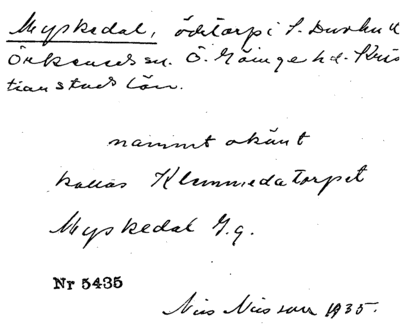 Myskedal, ödetorp i S. Durhud
Örkeneds sn. Ö. Göinge hd. Kris
tianstads län.
namnet okänt
kallas Klemmedatorpet
Myskedal G.g.
Nr 5435
Nils Nilsson 1935.